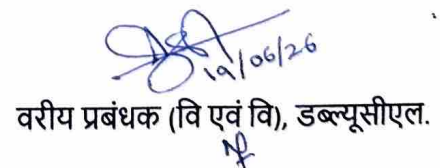 19/06/26
वरीय प्रबंधक (वि एवं वि), डब्ल्यूसीएल.